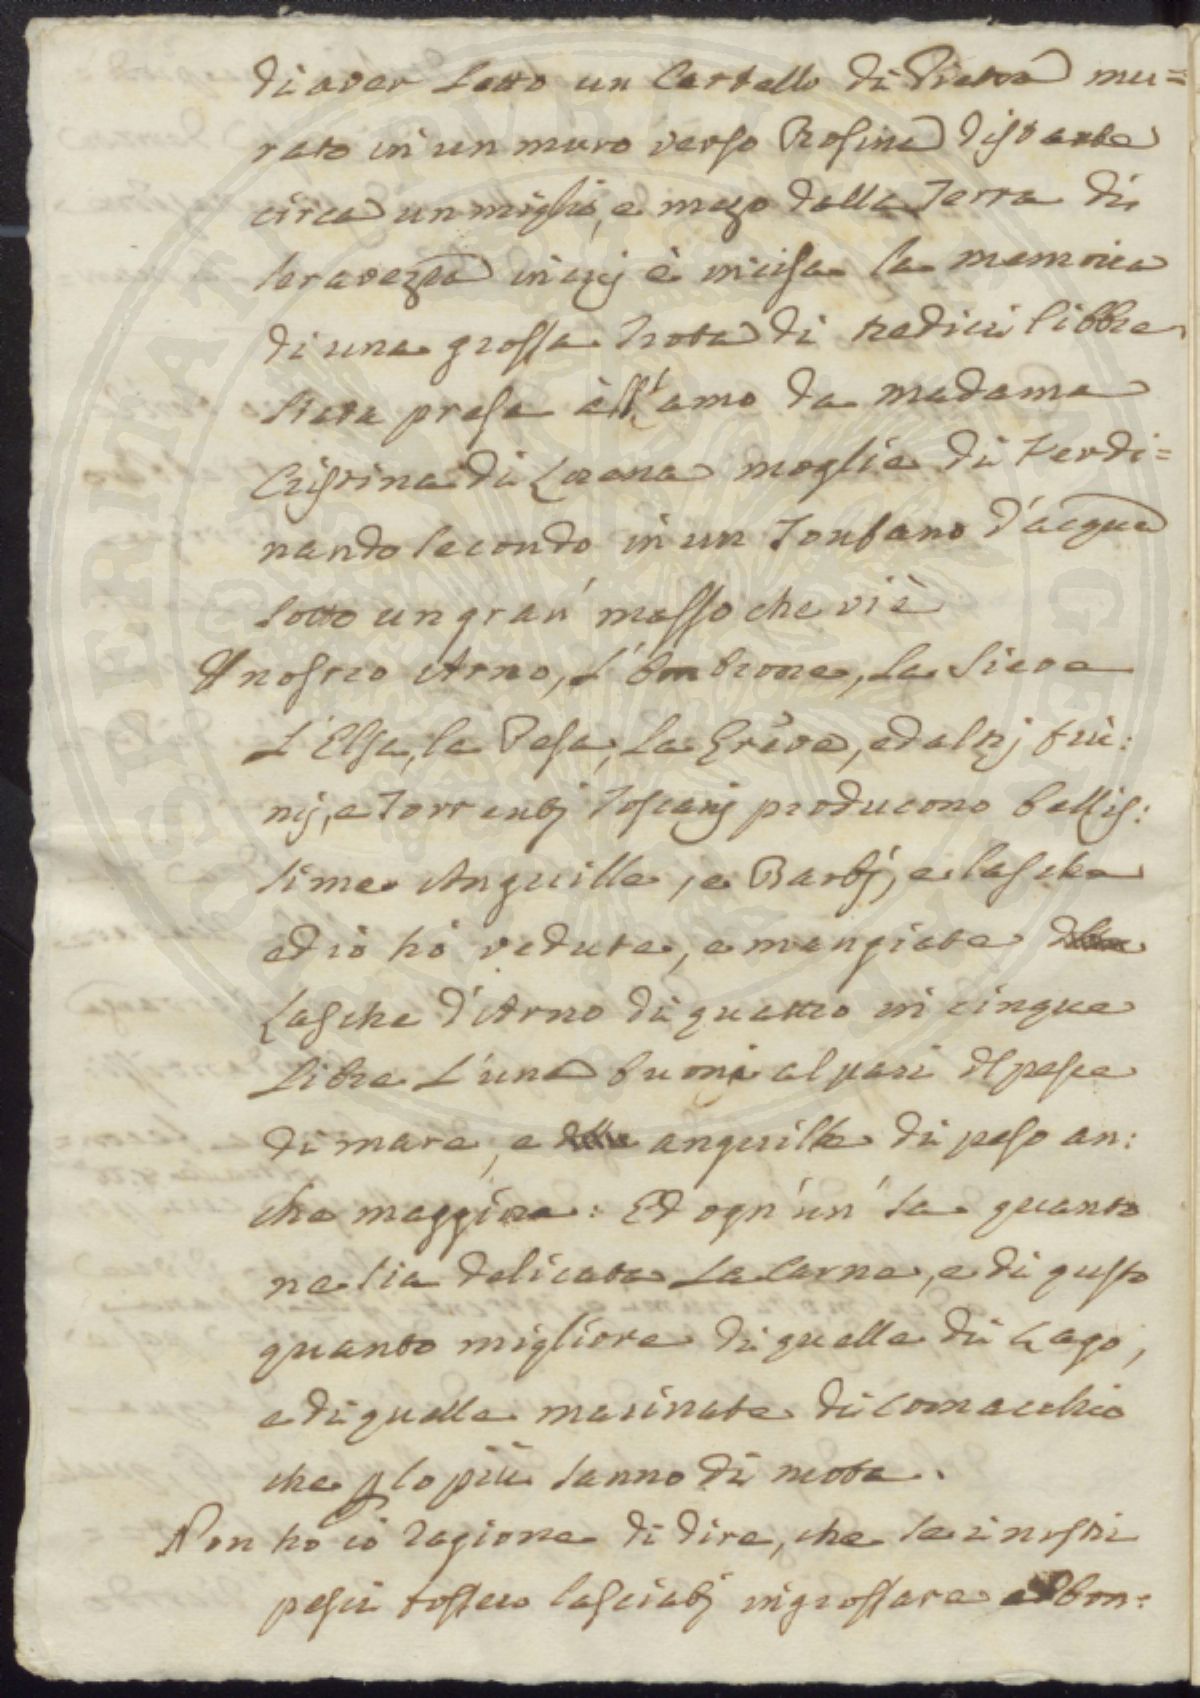 di aver letto un Cartello di Pietra mu=
rato in un muro verso Rosina distante
circa un miglio, e mezo dalla Terra di
Seravezza in cuj è incisa la memoria
di una grossa Trota di tredici libbre
stata presa all'amo da madama
Cristina di Lorena moglie di Ferdi=
nando secondo in un Tonfano d'acqua
sotto un gran' masso che vi è
Il nostro Arno, L'Ombrone, La Sieve
L'Elsa, la Pesa, La Greve, ed altrj fiu:
mj, e Torrentj Toscanj producono bellis:
sime Anguille, e Barbj, e lasche
ed io hò vedute, e mangiate
Lasche d'Arno di quattro in cinque
Libre L'una buonj al pari del pesce
di mare, e anguille di peso an:
che maggiore: Ed ogn'un' sa quanto
ne sia delicata La Carne, e di gusto
quanto migliore di quelle di Lago,
e di quelle marinate di Comacchio
che p lo più sanno di mota.
Non ho io ragione di dire, che se i nostri
pesci fossero lasciatj ingrossare ed bon: